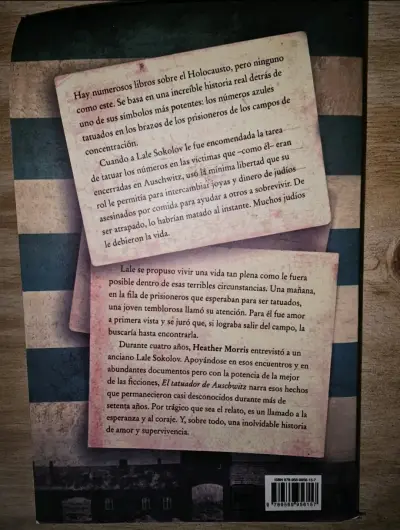 Hay numerosos libros sobre el Holocausto, pero ninguno
como este. Se basa en una increíble historia real detrás de
uno de sus símbolos más potentes: los números azules
tatuados en los brazos de los prisioneros de los campos de
concentración.
Cuando a Lale Sokolov le fue encomendada la tarea
de tatuar los números en las víctimas que –como él– eran
encerradas en Auschwitz, usó la mínima libertad que su
rol le permitía para intercambiar joyas y dinero de judíos
asesinados por comida para ayudar a otros a sobrevivir. De
ser atrapado, lo habrían matado al instante. Muchos judíos
le debieron la vida.
Lale se propuso vivir una vida tan plena como le fuera
posible dentro de esas terribles circunstancias. Una mañana,
en la fila de prisioneros que esperaban para ser tatuados,
una joven temblorosa llamó su atención. Para él fue amor
a primera vista y se juró que, si lograba salir del campo, la
buscaría hasta encontrarla.
Durante cuatro años, Heather Morris entrevistó a un
anciano Lale Sokolov. Apoyándose en esos encuentros y en
abundantes documentos pero con la potencia de la mejor
de las ficciones, El tatuador de Auschwitz narra esos hechos
que permanecieron casi desconocidos durante más de
setenta años. Por trágico que sea el relato, es un llamado a la
esperanza y al coraje. Y, sobre todo, una inolvidable historia
de amor y supervivencia.